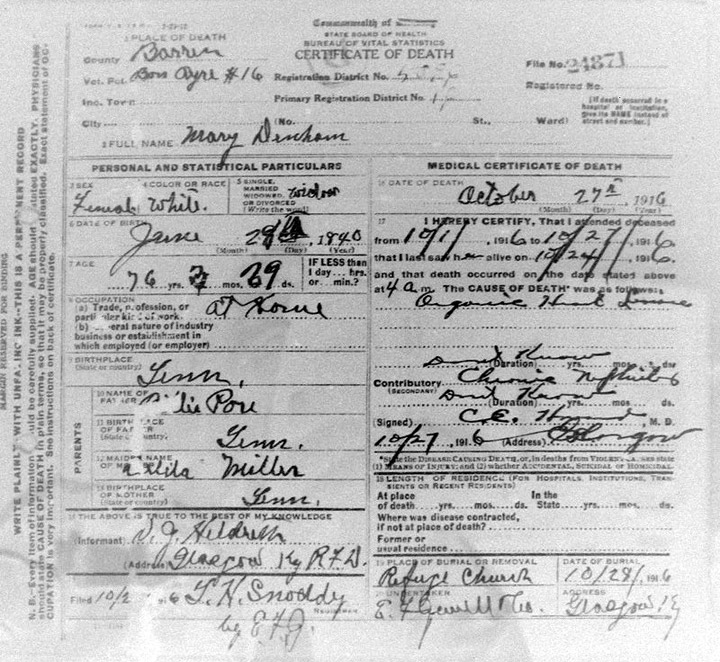 Commonwealth of
STATE BOARD OF HEALTH
BUREAU OF VITAL STATISTICS
CERTIFICATE OF DEATH
1 PLACE OF DEATH
County Barren
Vot. Pct. Bon Ayre #16
Registration District No.
File No. 24871
Inc. Town
Primary Registration District No.
Registered No.
City (No. St., Ward)
[If death occurred in a hospital or institution, give its NAME instead of street and number.]
2 FULL NAME Mary Denham
PERSONAL AND STATISTICAL PARTICULARS
3 SEX Female
4 COLOR OR RACE White.
5 SINGLE, MARRIED WIDOWED, OR DIVORCED (Write the word) Widow
6 DATE OF BIRTH
28th, 1840
(Month) (Day) (Year)
7 AGE
76 yrs. mos. 29 ds.
IF LESS than 1 day... hrs. or... min.?
8 OCCUPATION
(a) Trade, profession, or particular kind of work At Home
(b) General nature of industry
business or establishment in
which employed (or employer)
9 BIRTHPLACE
(State or country)
Tenn,
PARENTS
10 NAME OF FATHER Pore
11 BIRTHPLACE OF FATHER
(State or country) Tenn.
12 MAIDEN NAME OF MOTHER Miller
13 BIRTHPLACE OF MOTHER
(State or country) Tenn,
14 THE ABOVE IS TRUE TO THE BEST OF MY KNOWLEDGE
(Informant) Hildreth
(Address) Glasgow Ky R.F.D.
Filed 10/2 6 L. H. Snoddy
REGISTRAR
by E.F.J.
MEDICAL CERTIFICATE OF DEATH
16 DATE OF DEATH
October 27th, 1916
(Month) (Day) (Year)
17 I HEREBY CERTIFY, That I attended deceased
from 10/1, 1916 to 10/27, 1916
that I last saw her alive on 10/24, 1916.
and that death occurred on the date stated above
at 4 a m. The CAUSE OF DEATH was as follows:
Organic Heart
Dont Know
(Duration) yrs. mos. ds.
Contributory Chronic Nephritis
(SECONDARY)
Dont Know
(Duration) yrs. mos. ds.
(Signed) C. E. M. D.
10/27 1916 (Address) Glasgow
*State the DISEASE CAUSING DEATH, or, in deaths from VIOLENT CAUSES state
(1) MEANS OF INJURY; and (2) whether ACCIDENTAL, SUICIDAL OR HOMICIDAL
18 LENGTH OF RESIDENCE (FOR HOSPITALS, INSTITUTIONS, TRANSIENTS OR RECENT RESIDENTS)
At place of death....yrs....mos....ds. In the State....yrs....mos....ds.
Where was disease contracted,
if not at place of death?
Former or
usual residence
19 PLACE OF BURIAL OR REMOVAL
DATE OF BURIAL
Refuge Church 10/28/1916
20 UNDERTAKER
ADDRESS
Glasgow Ky
MARGIN RESERVED FOR BINDING
WRITE PLAINLY WITH UNFADING INK--THIS IS A PERMANENT RECORD
N. B.--Every item of information should be carefully supplied. AGE should be stated EXACTLY. PHYSICIANS
should state CAUSE OF DEATH in plain terms, so that it may be properly classified. Exact statement of OC-
CUPATION is very important. See instructions on back of certificate.